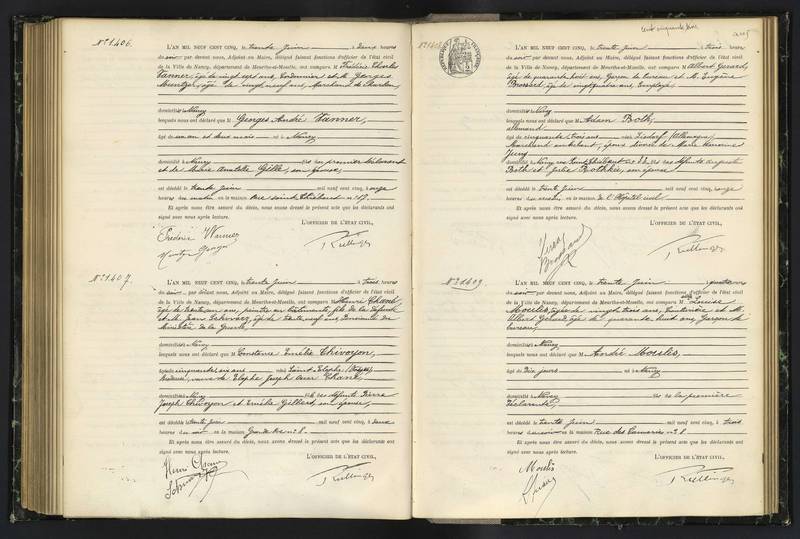 N° 1406.
L'AN MIL NEUF CENT CINQ, le trente Juin à deux heures
du soir par devant nous, Adjoint au Maire, délégué faisant fonctions d'officier de l'état civil
de la Ville de Nancy, département de Meurthe-et-Moselle, ont comparu M Frédéric Charles
Vanner, âgé de vingt sept ans, Cordonnier et M. Georges
âgé de vingt neuf ans, Marchand de Charbon,
domiciliés Nancy
lesquels nous ont déclaré que M Georges André Vanner,
âgé de un an et deux mois né à Nancy
domicilié à Nancy fils du premier déclarant
et de Marie Anatolie Gille, son épouse,
est décédé le trente Juin mil neuf cent cinq, à onze
heures du matin en la maison Rue Saint Thiébaut n° 17.
Et après nous être assuré du décès, nous avons dressé le présent acte que les déclarants ont
signé avec nous après lecture.
L'OFFICIER DE L'ÉTAT CIVIL,
N° 1407.
L'AN MIL NEUF CENT CINQ, le trente Juin à trois heures
du soir par devant nous, Adjoint au Maire, délégué faisant fonctions d'officier de l'état civil
de la Ville de Nancy, département de Meurthe-et-Moselle, ont comparu M Henri Chané
âgé de trente un ans, peintre en bâtiments, fils de la défunte
et M. Jean Schwarz, âgé de trente neuf ans,
Ministère de la Guerre,
domiciliés Nancy
lesquels nous ont déclaré que M Constance Emélie Thivoyon,
âgée de cinquante six ans née à Saint Elophe (Vosges)
veuve de Elophe Joseph Chané,
domiciliée Nancy fille des défunts Pierre
Joseph Thivoyon et Emélie Gilbert, son épouse,
est décédée trente Juin mil neuf cent cinq, à deux
heures du soir en la maison Grande Rue n° 8.
Et après nous être assuré du décès, nous avons dressé le présent acte que les déclarants ont
signé avec nous après lecture.
L'OFFICIER DE L'ÉTAT CIVIL,
Henri Chané
N° 1408
L'AN MIL NEUF CENT CINQ, le trente Juin à trois heures
du soir par devant nous, Adjoint au Maire, délégué faisant fonctions d'officier de l'état civil
de la Ville de Nancy, département de Meurthe-et-Moselle, ont comparu M Albert Gérard,
âgé de quarante huit ans, Garçon de bureau et M. Eugène
âgé de vingt quatre ans, Employé,
domiciliés Nancy
lesquels nous ont déclaré que M Adam Both,
allemand
âgé de cinquante trois ans né à (Allemagne)
Marchand ambulant, époux divorcé de Marie
Jung
domicilié à Nancy, rue Saint Thiébaut fils des défunts Auguste
Both et Julie son épouse
est décédé le trente Juin mil neuf cent cinq, à onze
heures du matin en la maison de l'Hôpital civil
Et après nous être assuré du décès, nous avons dressé le présent acte que les déclarants ont
signé avec nous après lecture.
L'OFFICIER DE L'ÉTAT CIVIL,
N° 1409.
L'AN MIL NEUF CENT CINQ, le trente Juin à quatre heures
du soir par devant nous, Adjoint au Maire, délégué faisant fonctions d'officier de l'état civil
de la Ville de Nancy, département de Meurthe-et-Moselle, ont comparu M elle Louise
Mouslès, âgée de vingt trois ans, Couturière et M.
Albert Gérard âgé de quarante huit ans, Garçon de
bureau,
domiciliés Nancy
lesquels nous ont déclaré que M André Mouslès,
âgé de Dix jours né à Nancy
domicilié à Nancy fils de la première
déclarante,
est décédé le trente Juin mil neuf cent cinq, à trois
heures du soir en la maison Rue des n° 8.
Et après nous être assuré du décès, nous avons dressé le présent acte que les déclarants ont
signé avec nous après lecture.
L'OFFICIER DE L'ÉTAT CIVIL,